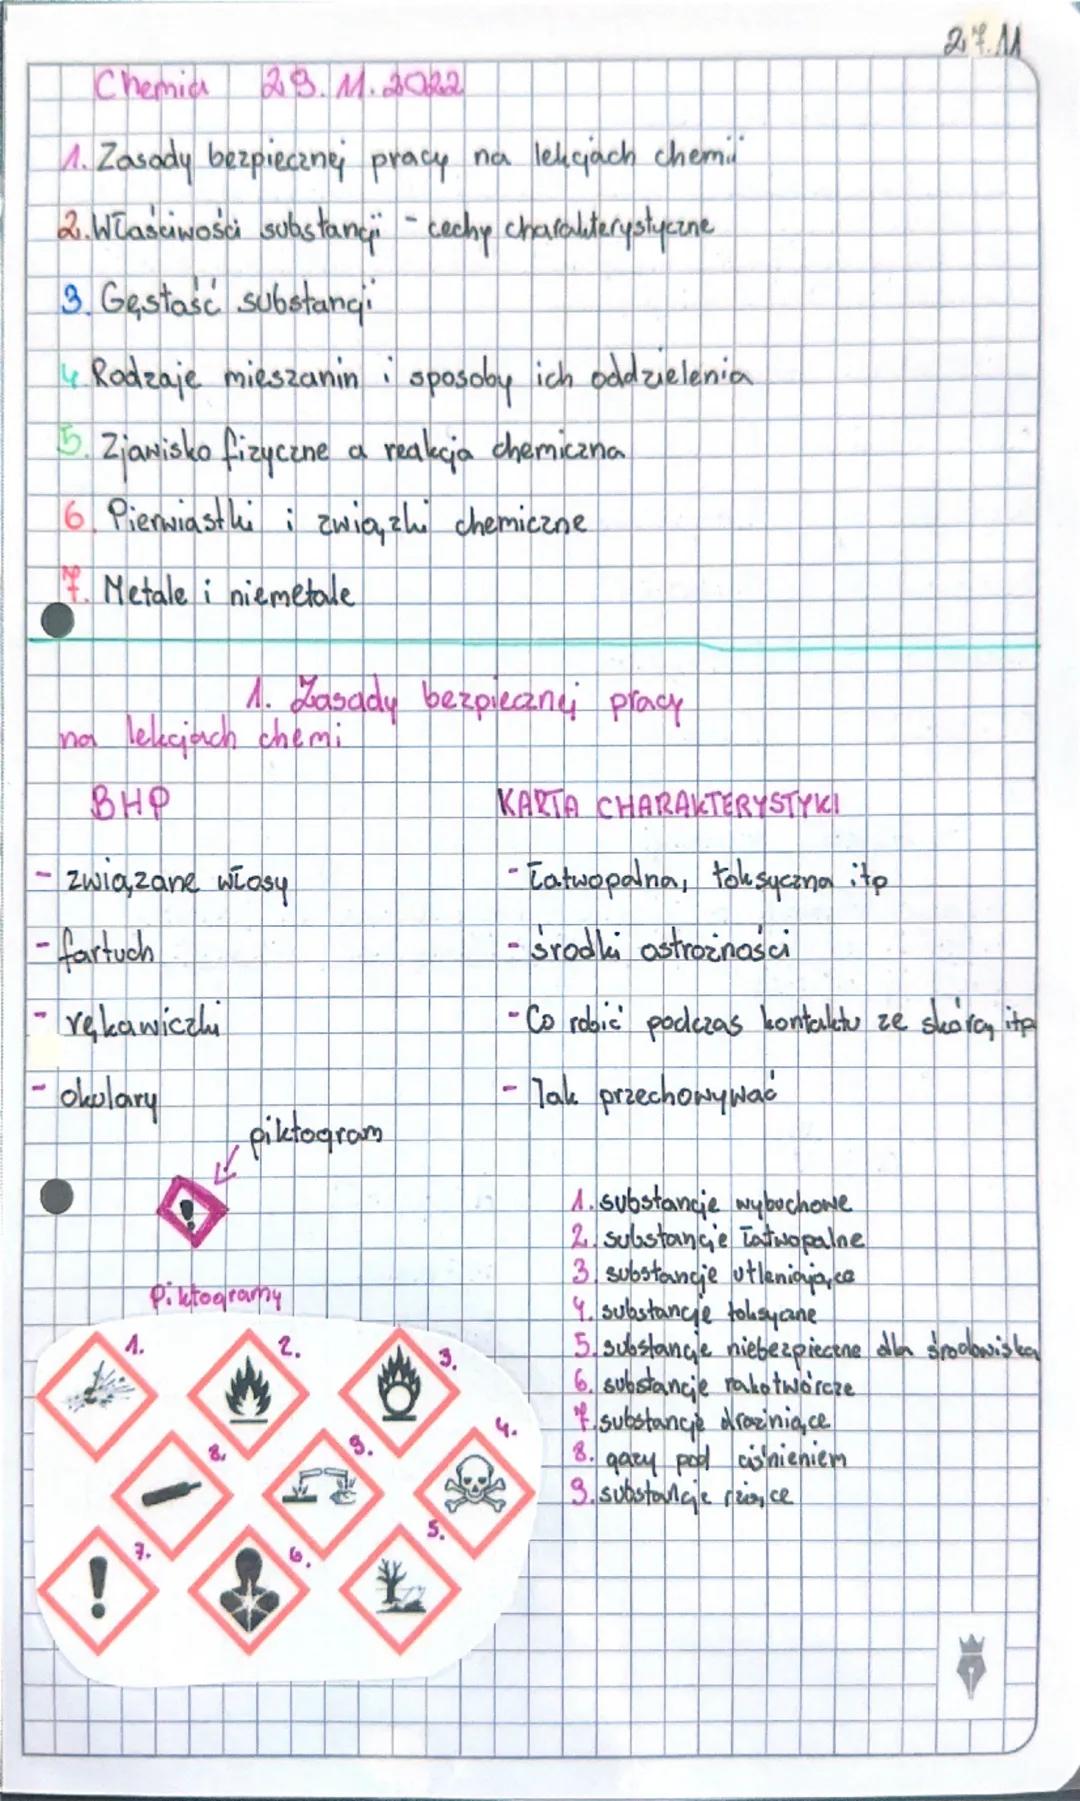 27.11
Chemia 29.11.2022
1. Zasady bezpiecznej pracy na lekcjach chemii
2. Właściwości substancji - cechy charakterystyczne
3. Gęstość substancji
4. Rodzaje mieszanin i sposoby ich oddzielenia
5. Zjawisko fizyczne a reakcja chemiczna
6. Pierwiastki i związki chemiczne
7. Metale i niemetale
1. Zasady bezpiecznej pracy
na lekcjach chemi
BHP
- związane włosy
- fartuch
- rękawiczki
- okulary
KARTA CHARAKTERYSTYKI
- łatwopalna, toksyczna itp
- środki ostrożności
- Co robić podczas kontaktu ze skórą itp
- Jak przechowywać
piktogram
!
Piktogramy
1. 2. 3.
8. 9. 4.
7. 6. 5.
1. substancje wybuchowe
2. substancje łatwopalne
3. substancje utleniające
4. substancje toksyczne
5. substancje niebezpieczne dla środowiska
6. substancje rakotwórcze
7. substancje drażniące
8. gazy pod ciśnieniem
9. substancje żrące